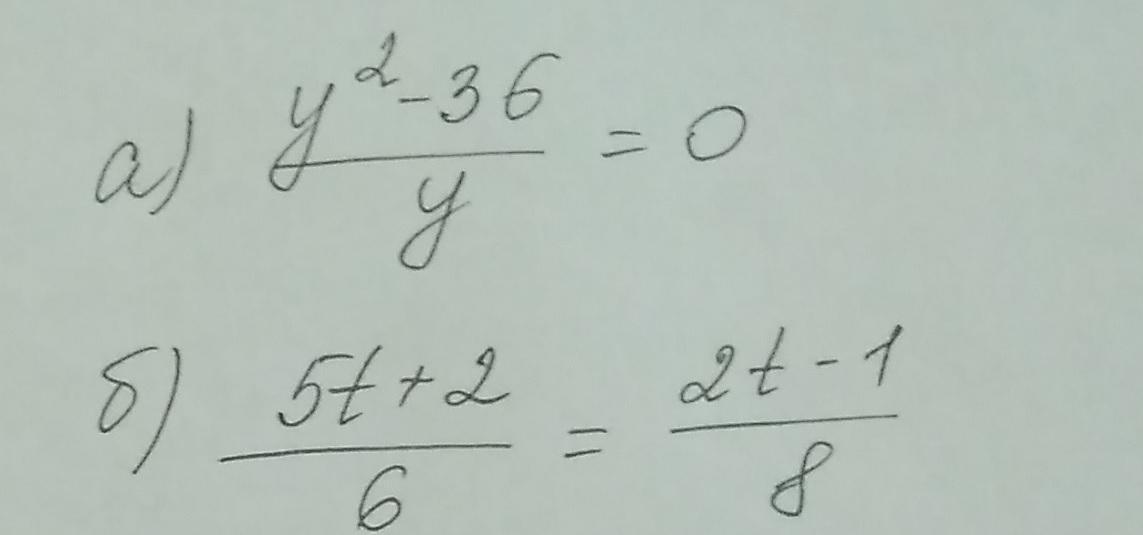 а) (y² - 36) / y = 0
б) (5t + 2) / 6 = (2t - 1) / 8